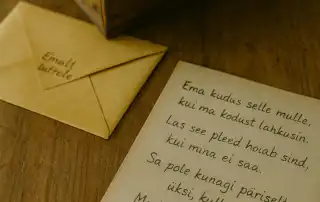 Emalt
tütrele
Ema kudus selle mulle,
kui ma kodust lahkusin.
Las see pleed hoiab sind,
kui mina ei saa.
Sa pole kunagi päriselt
üksi,